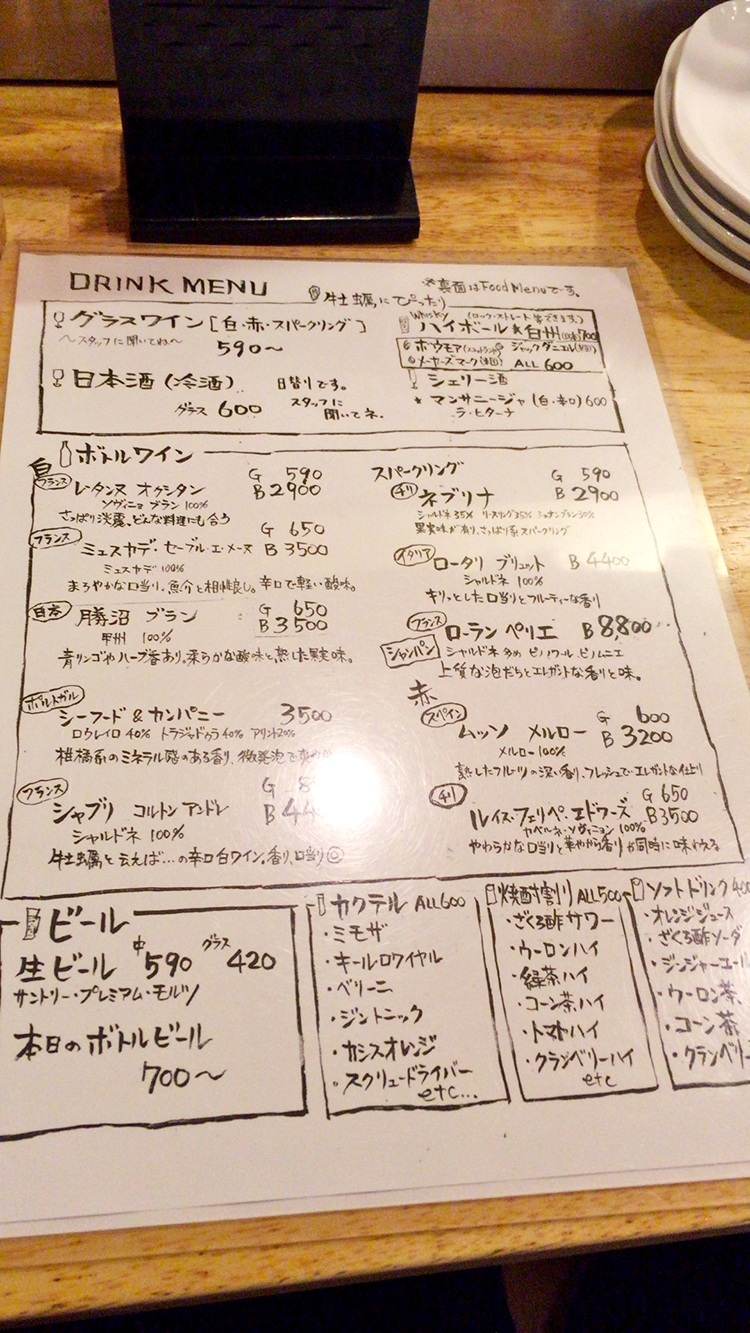 DRINK MENU
牡蠣にぴったり
※裏面はFood Menuです。
グラスワイン [白・赤・スパークリング]
〜スタッフに聞いてね〜
590〜
日本酒(冷酒) 日替りです。
グラス 600 スタッフに
聞いてネ。
Whisky (ロック・ストレート 等できます。)
ハイボール ★白州 700
ボウモア ジャックダニエル
メーカーズマーク ALL 600
シェリー酒
★ マンサニージャ (白・辛口) 600
ラ・ヒターナ
ボトルワイン
白
フランス レ・タンヌ オクシタン G 590
B 2900
ソヴィニョ ブラン 100%
さっぱり淡麗、どんな料理にも合う
フランス ミュスカデ・セーブル・エ・メーヌ G 650
B 3500
ミュスカデ 100%
まろやかな口当り。魚介と相性良し。辛口で軽い酸味。
日本 勝沼 ブラン G 650
B 3500
甲州 100%
青リンゴやハーブ香あり。柔らかな酸味と熟した果実味。
ポルトガル
シーフード & カンパニー 3500
ロウレイロ 40% トラジャドゥラ 40% アリント20%
柑橘系のミネラル感のある香り、微発泡で
フランス シャブリ コルトン アンドレ G 8
B 44
シャルドネ 100%
牡蠣と云えば…の辛口白ワイン。香り、口当り◎
スパークリング
チリ ネブリナ G 590
B 2900
シャルドネ 35% リースリング35% 30%
果実味が有り、さっぱり系スパークリング
イタリア ロータリ ブリュット B 4400
シャルドネ 100%
キリっとした口当りとフルーティーな香り
フランス ローラン ペリエ B 8,800
シャンパン シャルドネ 多め ピノノワール ピノムニエ
上質な泡だちとエレガントな香りと味。
赤
スペイン ムッソ メルロー G 600
B 3200
メルロー 100%
熟したフルーツの深い香り、フレッシュでエレガントな仕上り
チリ ルイス・フェリペ・エドワーズ G 650
B 3500
カベルネ・ソヴィニョン 100%
やわらかな口当りと華やかな香りが同時に味わえる
ビール
生ビール 中 590 グラス 420
サントリー・プレミアム・モルツ
本日のボトルビール
700〜
カクテル ALL 600
・ミモザ
・キールロワイヤル
・ベリーニ
・ジントニック
・カシスオレンジ
・スクリュードライバー
etc...
焼酎割り ALL 500
・ざくろ酢サワー
・ウーロンハイ
・緑茶ハイ
・コーン茶ハイ
・トマトハイ
・クランベリーハイ
etc
ソフトドリンク 400
・オレンジジュース
・ざくろ酢ソーダ
・ジンジャーエール
・ウーロン茶
・コーン茶
・クランベリー